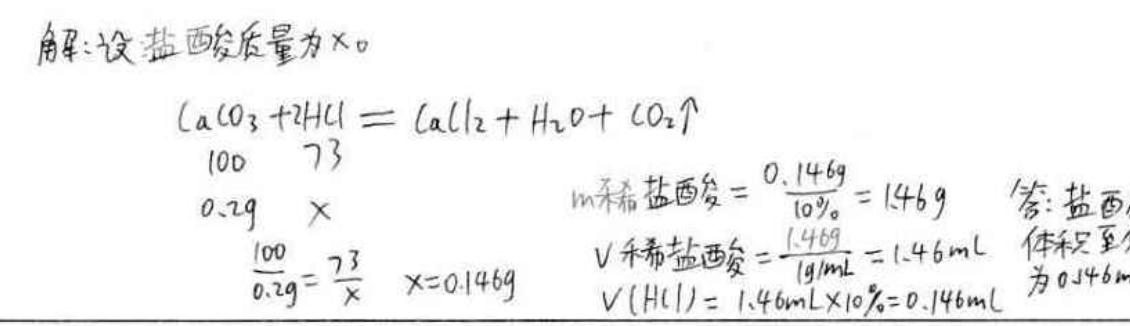 解:设盐酸质量为x。
CaCO₃+2HCl=CaCl₂+H₂O+CO₂↑
100 73
0.2g x
100/0.2g=73/x x=0.146g
m稀盐酸=0.146g/10%=1.46g
V稀盐酸=1.46g/1g/mL=1.46mL
V(HCl)=1.46mL×10%=0.146mL
答:盐酸
体积至
为0.146m